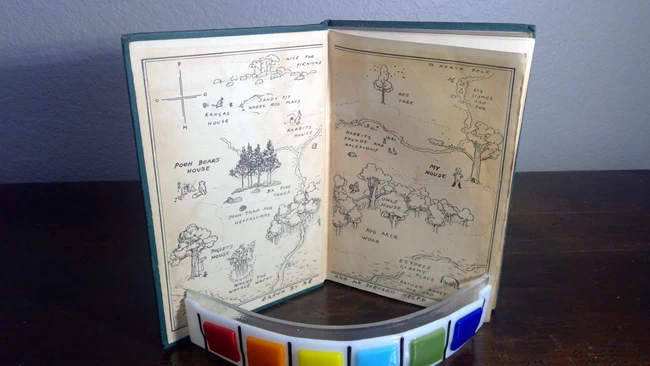 P
O O
H
NICE FOR
PIKNICKS
KANGAS
HOUSE
SANDY PIT
WHERE ROO PLAYS
RABBITS
HOUSE
POOH BEARS
HOUSE
SIX PINE
TREES
POOH TRAP FOR
HEFFALUMPS
PIGLETS
HOUSE
WHERE THE
WOOZLE WASNT
DRAWN BY ME
TO NORTH POLE
BEE
TREE
BIG
STONES
AND
ROX
RABBITS
FRENDS AND
RALETIONS
MY
HOUSE
OWLS
HOUSE
100 AKER
WOOD
EEYORES
GLOOMY
PLACE
RATHER BOGGY
AND SAD
AND MR SHEPARD HELPD